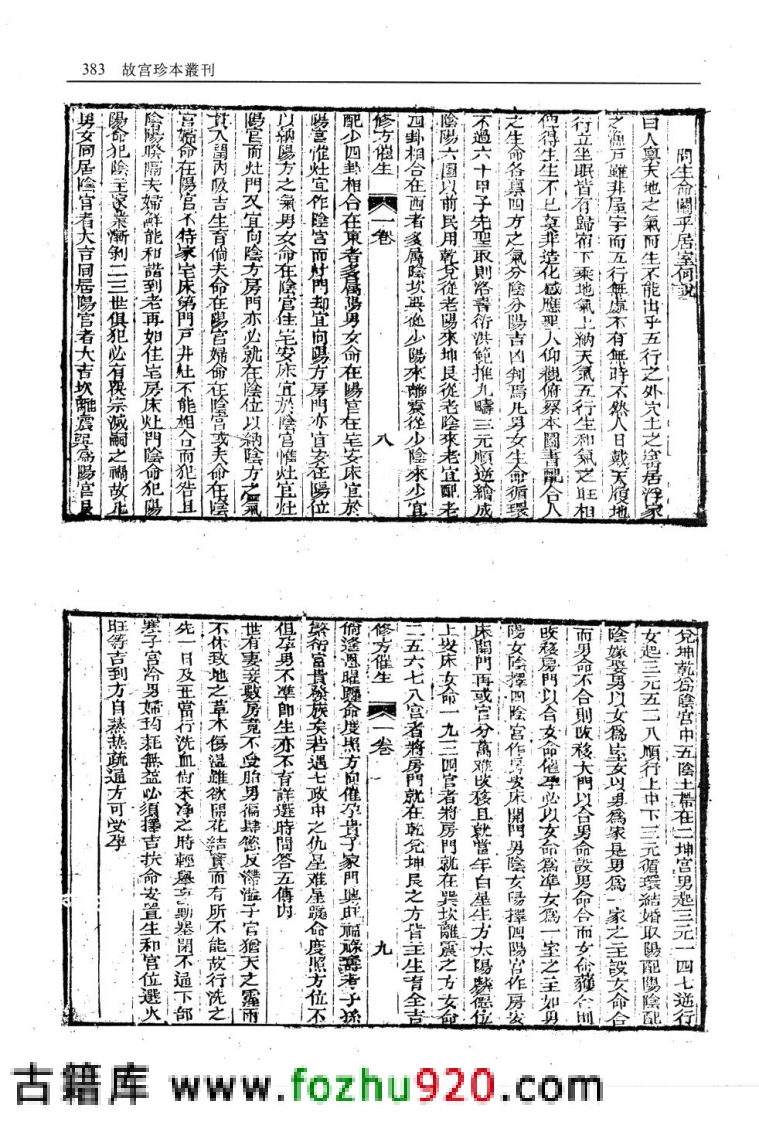 383 故宮珍本叢刊
問生命關乎居室何說
曰人與天地之氣而生不能出乎五行之外穴土之居浮家
之漁戶雖非屋宇而五行無處不有無時不然人日戴天履地
行立坐眠皆有歸宿下乘地氣上納天氣五行生和氣之旺相
得生生不已莫非造化感應聖人仰觀俯察本圖書配合人
之生命各稟四方之氣分陰分陽吉凶判焉凡男女生命循環
不過六十甲子先聖取則洛書衍洪範推九疇三元順逆輪成
陰陽六圖以前民用乾兌從老陽來坤艮從老陰來老宜配老
四卦相合在西者多屬陰坎巽從少陽來離震從少陰來少宜
修方催生 一卷 八
配少四卦相合在東者多屬陽男女命在陽宮在宅安床宜於
陽宮惟灶宜作陰宮而灶門却宜向陽方房門亦宜安在陽位
以納陽方之氣男女命在陰宮住宅安床宜於陰宮惟灶宜灶
陽宮而灶門又宜向陰方房門亦必就在陰位以納陰方之氣
貫入閨內吸吉生育倘夫命在陽宮婦命在陰宮或夫命在陰
宮婦命在陽宮不特家宅床第門戶井灶不能相合而犯咎且
陰陽睽隔夫婦鮮能和諧到老再如住宅房床灶門陰命犯陽
陽命犯陰主家業漸剝二三世俱犯必有絕宗滅嗣之禍故凡
男女同居陰宮者大吉同居陽宮者大吉坎離震巽為陽宮艮
兌坤乾為陰宮中五陰土寄在二坤宮男起三元一四七逆行
女起三元五二八順行上中下三元循環結婚取陽配陽陰配
陰嫁娶男以女為室女以男為家是男為一家之主設女命合
而男命不合則改移大門以合男命設男命合而女命不合則
改移房門以合女命催孕必以女命為準女為一室之主如男
陽女陰擇四陰宮作房安床開門男陰女陽擇四陽宮作房安
床開門再或宮分萬難改移且就當年白星生方太陽麟德位
上安床女命一九三四宮者將房門就在巽坎離震之方女命
二五六七八宮者將房門就在乾兌坤艮之方皆主生育全吉
修方催生 一卷 九
倘逢恩曜躔命度照方向催孕貴子家門興旺福祿壽考子孫
繁衍富貴發族矣若遇七政中之仇星難星躔命度照方位不
但孕男不準即生亦不育詳選時問答五傳内
世有妻妾數房竟不受胎男徧肆慾反滯溢子宮猶天之霪雨
不休致地之草木傷溫雖欲開花結實而有所不能故行洗之
先一日及正當行洗血尚未淨之時輕舉妄動塞閉不通下部
寒子宮冷男婦藥無益必須擇吉扶命安置生和宮位選火
旺等吉到方自蒸熱疏通方可受孕
古籍库 www.fozhu920.com